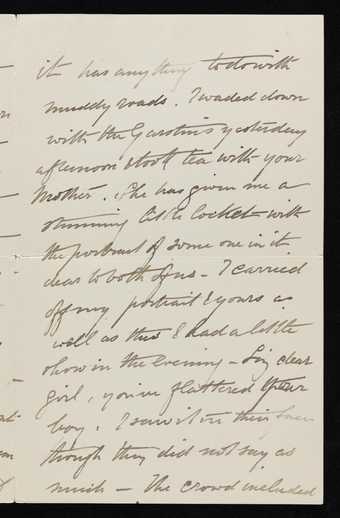 it has anything to do with
muddy roads. I waded down
with the yesterday
afternoon & took tea with your
Mother. She has given me a
stunning little locket with
the portrait of some one in it
dear to both of us - I carried
off my portrait & yours as
well as this & had a little
show in the evening - dear
girl, you've flattered your
boy. I saw it in their faces
though they did not say as
much - The crowd included